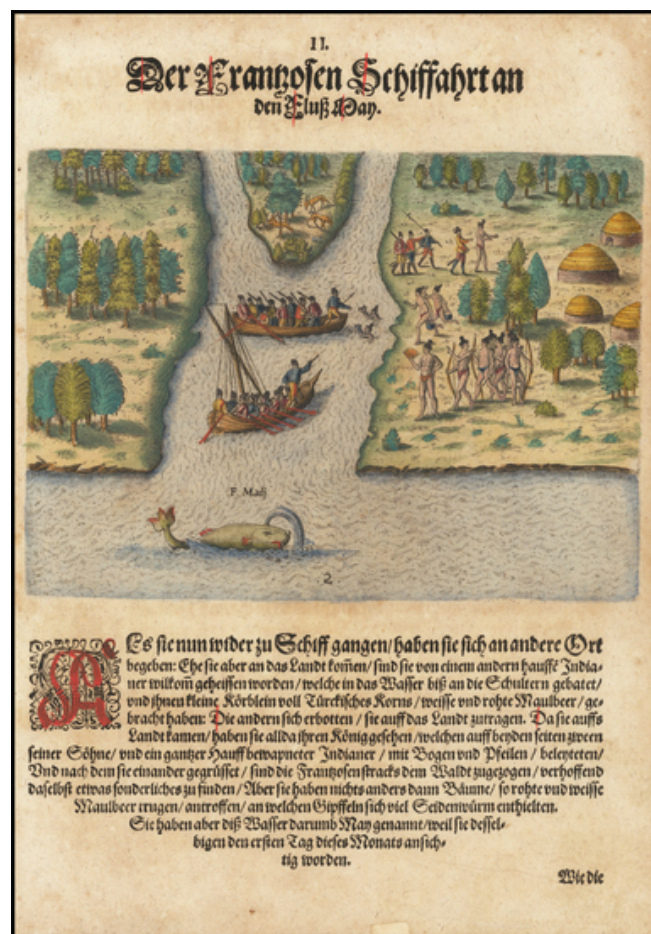 II.
Der Frantzosen Schiffahrt an
den Fluß May.
F. Maij
2
ALs sie nun wider zu Schiff gangen/ haben sie sich an andere Ort
begeben: Ehe sie aber an das Landt kom̃en/ sind sie von einem andern hauffẽ India-
ner wilkom̃ geheissen worden/ welche in das Wasser biß an die Schultern gebatet/
vnd jhnen kleine Körblein voll Türckisches Korns/ weisse vnd rohte Maulbeer/ ge-
bracht haben: Die andern sich erbotten / sie auff das Landt zutragen. Da sie auffs
Landt kamen/ haben sie allda jhren König gesehen/ welchen auff beyden seiten zween
seiner Söhne/ vnd ein gantzer Hauff bewapneter Indianer / mit Bogen vnd Pfeilen / beleyteten/
Vnd nach dem sie einander gegrüsset / sind die Frantzosen stracks dem Waldt zugezogen / verhoffend
daselbst etwas sonderliches zu finden / Aber sie haben nichts anders dann Bäume/ so rohte vnd weisse
Maulbeer trugen/ antroffen/ an welchen Gipffeln sich viel Seidenwürm enthielten.
Sie haben aber diß Wasser darumb May genannt/ weil sie dessel-
bigen den ersten Tag dieses Monats ansich-
tig worden.
Wie die